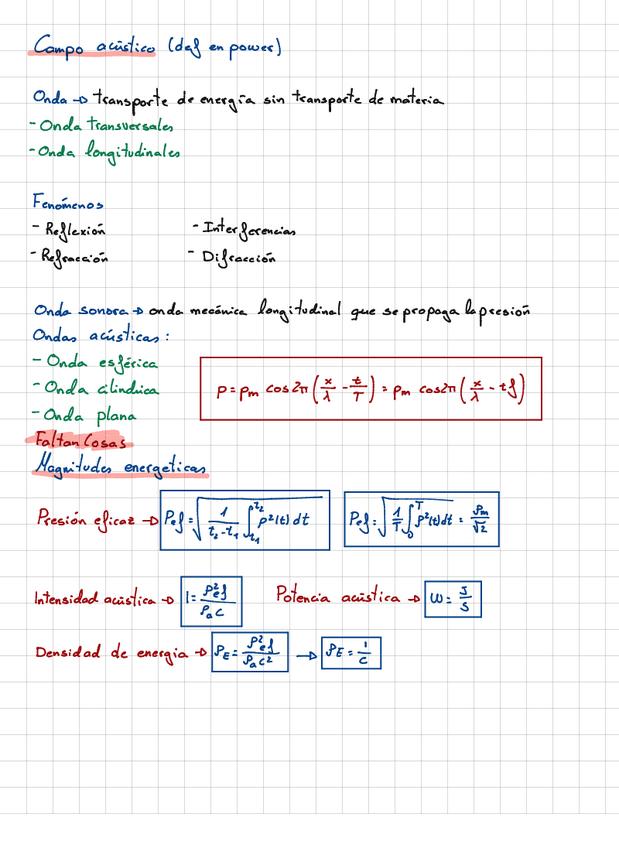 Campo acústico (def en power)
Onda → transporte de energía sin transporte de materia
- Onda transversales
- Onda longitudinales
Fenómenos
- Reflexión - Interferencias
- Refracción - Difracción
Onda sonora → onda mecánica longitudinal que se propaga la presión
Ondas acústicas:
- Onda esférica
- Onda cilíndrica
- Onda plana
p = pm cos 2π (x/λ - t/T) = pm cos 2π (x/λ - tf)
Faltan Cosas
Magnitudes energeticas
Presión eficaz → Pef = √(1/(t2-t1) ∫t1^t2 p²(t) dt) Pef = √(1/T ∫0^T p²(t) dt) = Pm/√2
Intensidad acústica → I = P²ef/ρa c Potencia acústica → W = J/S
Densidad de energia → ρE = P²ef/ρa c² → ρE = I/c